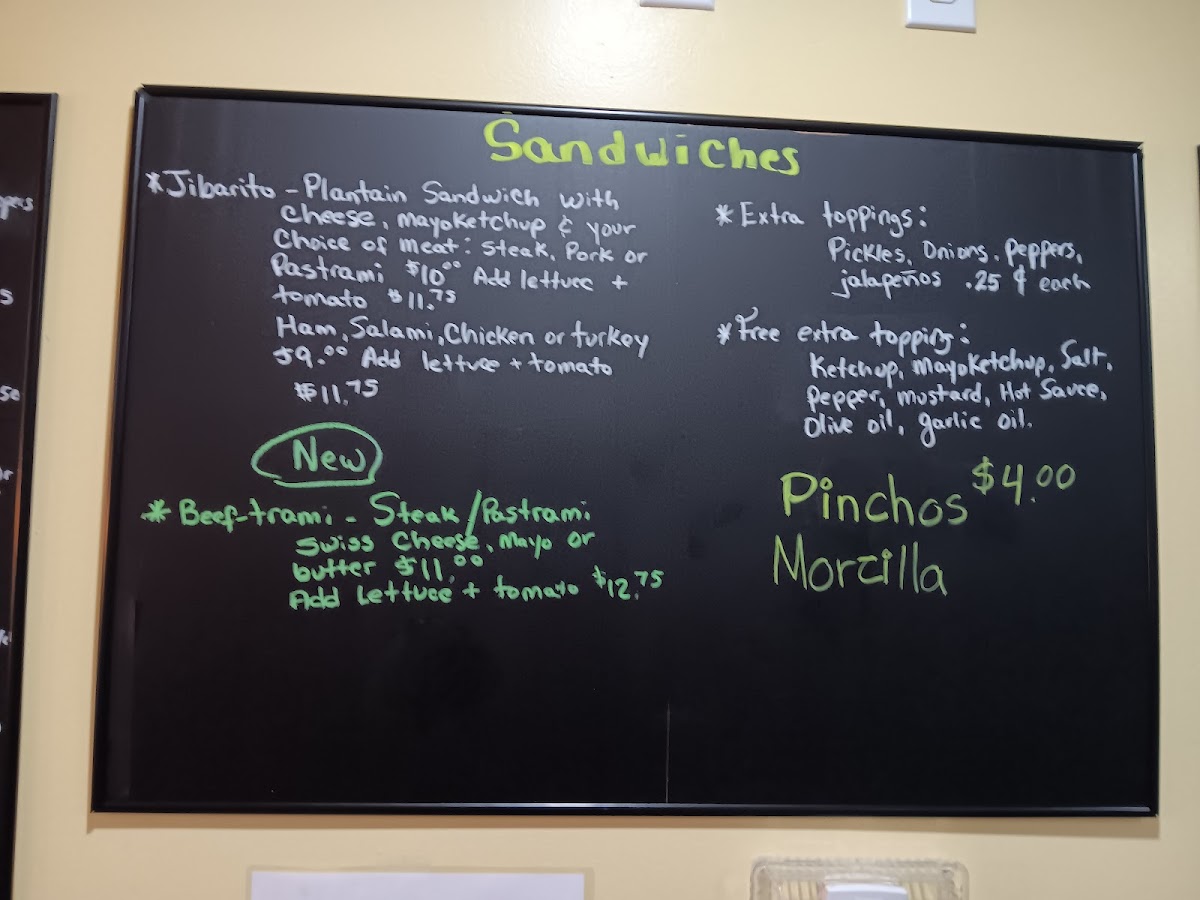 Sandwiches
*Jibarito - Plantain Sandwich with
Cheese, mayoketchup & your
Choice of meat: Steak, Pork or
Pastrami $10.00 Add lettuce +
tomato $11.75
Ham, Salami, Chicken or turkey
$9.00 Add lettuce + tomato
$11.75
New
*Beef-trami - Steak/Pastrami
Swiss Cheese, Mayo or
butter $11.00
Add Lettuce + tomato $12.75
*Extra toppings:
Pickles, Onions, Peppers,
jalapeños .25 ¢ each
*Free extra topping:
Ketchup, mayoketchup, Salt,
Pepper, mustard, Hot Sauce,
Olive oil, garlic oil.
Pinchos $4.00
Morzilla